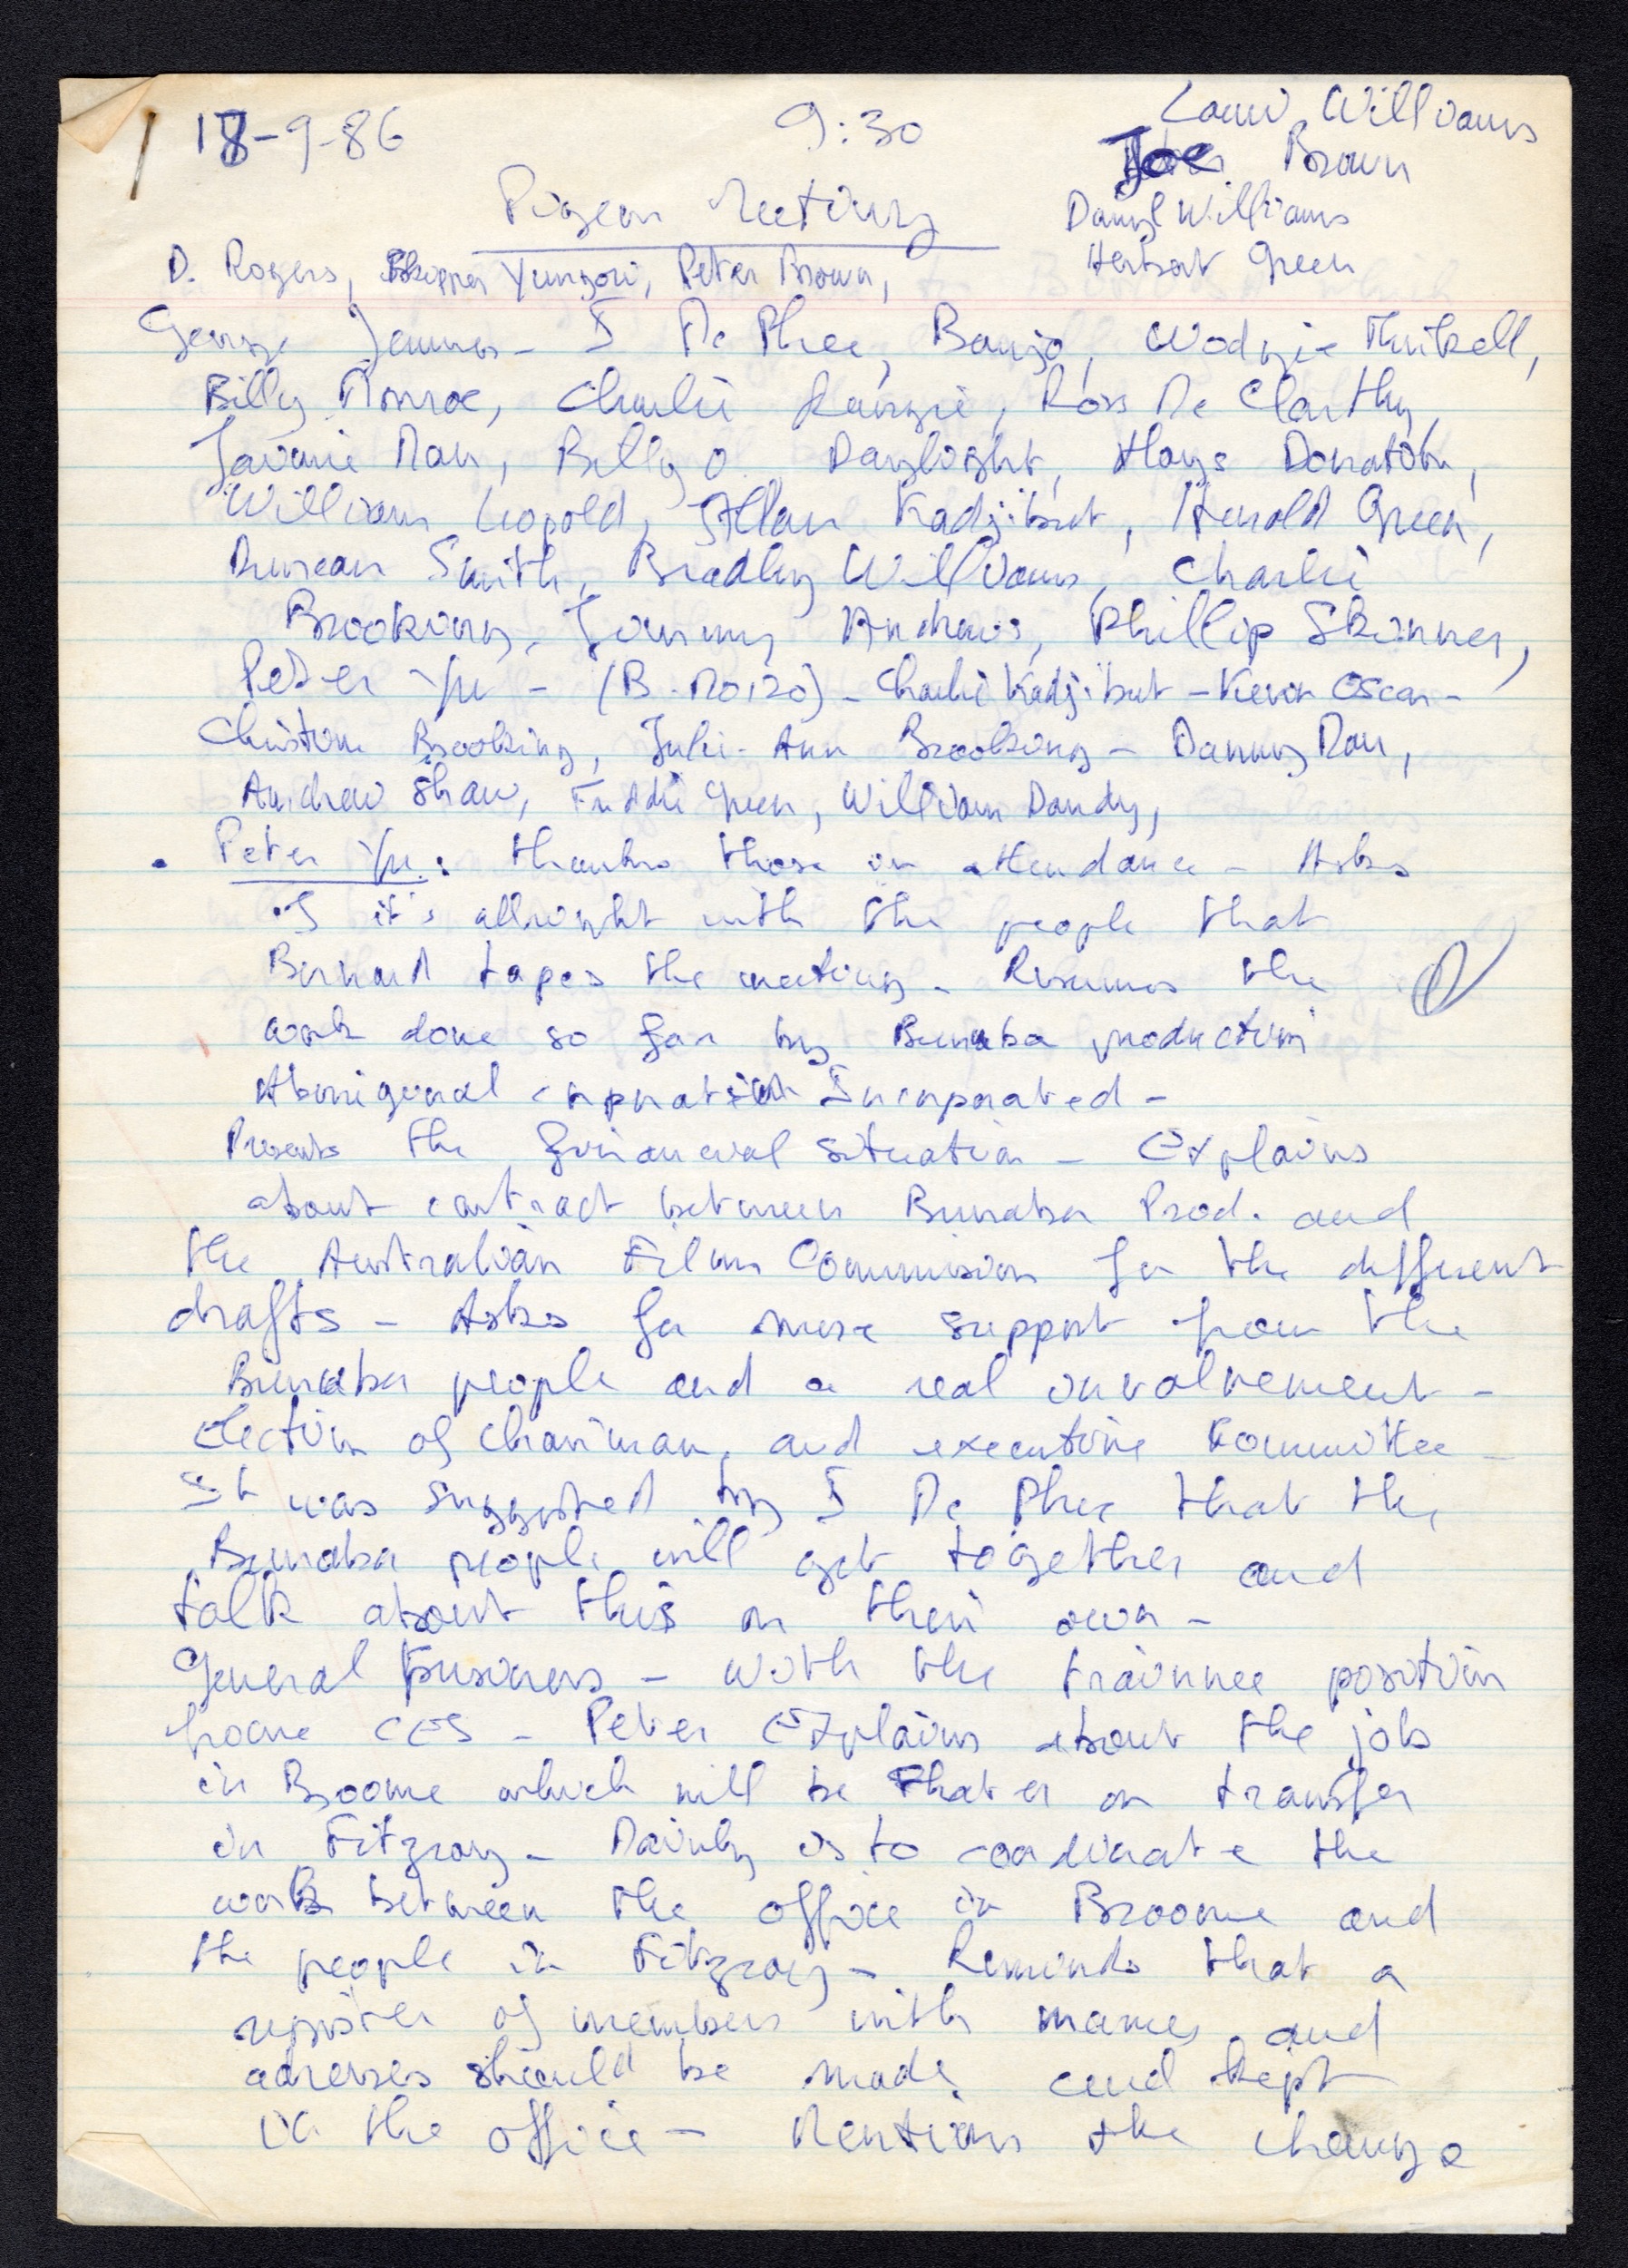 18-9-86
9:30
Williams
Joe Brown
Pigeon Meeting
Darryl Williams
Herbert Green
D. Rogers, Skipper Yungori, Peter Brown,
George Jennes - I Mc Phee, Banjo, Wodgie Thirkell,
Billy Monroe, Charlie Rangie, Ross Mc Clarthy,
Man, Billy O. Daylight, Hays Donation,
William Leopold, Allan Kadjibut, Harold Green,
Duncan Smith, Bradley Williams, Charlie
Brooking, Jimmy Andrews, Phillip Skinner,
Peter Yu - (B. Moizo) - Charlie Kadjibut - Kevin Oscar -
Christine Brooking, Julie-Ann Brooking - Danny Man,
Andrew Shaw, Freddie Green, William Dandy,
• Peter Yu: thanks those in attendance - Asks
if it's allright with the people that
Bernard tapes the meeting - Resumes the
work done so far by Bunuba production
Aboriginal corporation Incorporated -
Presents the financial situation - Explains
about contract between Bunaba Prod. and
the Australian Film Commission for the different
drafts - Asks for more support from the
Bunuba people and a real involvement -
Election of chairman, and executive Committee -
It was suggested by I Mc Phee that the
Bunaba people will get together and
talk about this on their own -
General business - with the trainnee position
from CES - Peter Explains about the job
in Broome which will be later on transfer
in Fitzroy - Mainly is to coordinate the
work between the office in Broome and
the people in Fitzroy - Reminds that a
register of members with names and
adresses should be made and kept
in the office - Mentions the change